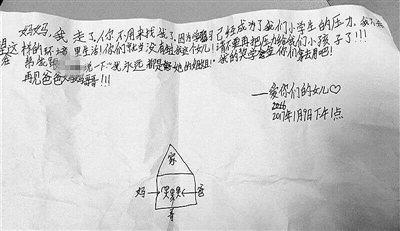 妈妈,我走了,你不用来找我了,因为学习已经成为了我们小学生的压力,我不会
望这样的环境里生活!你们就当没有生我这个女儿!请不要再把压力给我们小孩子了!!!
爸 帮我跟 说一下"我永远都是她的姐姐"我的奖学金你们拿去用吧!
再见爸爸妈妈哥哥!!!
——爱你们的女儿♡
2016
2017年1月9日下午1点
家
妈→ 哭哭哭 ←爸
哥